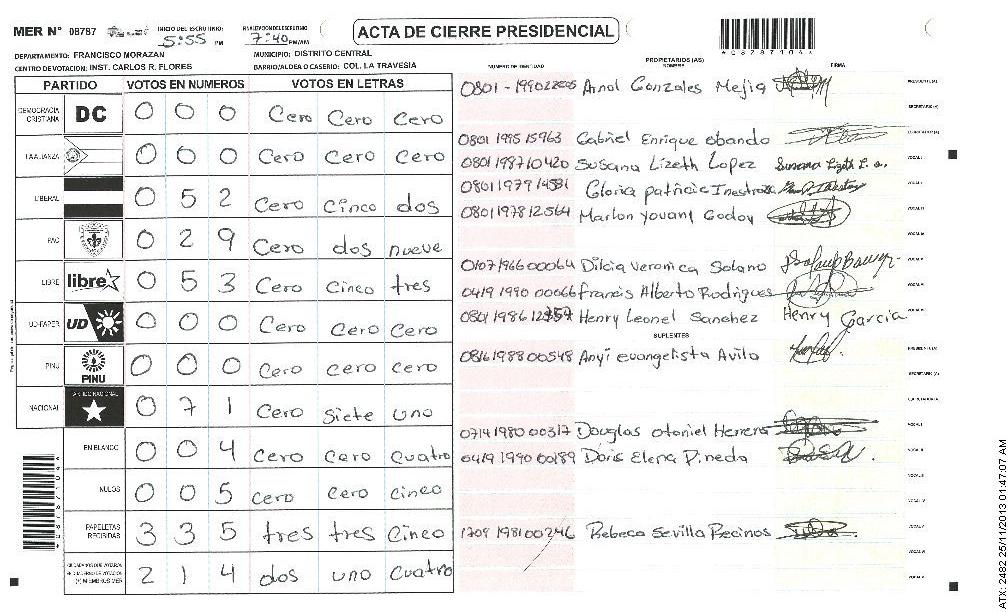 MER Nº 08787 INICIO DEL ESCRUTINIO: 5:55 PM FINALIZACION DEL ESCRUTINIO 7:40 PM/AM ACTA DE CIERRE PRESIDENCIAL
DEPARTAMENTO: FRANCISCO MORAZAN MUNICIPIO: DISTRITO CENTRAL
CENTRO DE VOTACION: INST. CARLOS R. FLORES BARRIO/ALDEA O CASERIO: COL. LA TRAVESIA
PARTIDO VOTOS EN NUMEROS VOTOS EN LETRAS
DEMOCRACIA CRISTIANA DC 0 0 0 Cero Cero Cero
FAALIANZA 0 0 0 Cero Cero Cero
LIBERAL 0 5 2 Cero Cinco dos
PAC 0 2 9 Cero dos nueve
LIBRE libre 0 5 3 Cero Cinco tres
UD-FAPER UD 0 0 0 Cero Cero Cero
PINU PINU 0 0 0 Cero Cero Cero
NACIONAL PARTIDO NACIONAL 0 7 1 Cero Siete uno
EN BLANCO 0 0 4 Cero Cero Cuatro
NULOS 0 0 5 Cero Cero Cinco
PAPELETAS RECIBIDAS 3 3 5 tres tres Cinco
CIUDADANOS QUE VOTARON 2 1 4 dos uno Cuatro
(+) MIEMBROS MER
NUMERO DE IDENTIDAD PROPIETARIOS (AS) NOMBRE FIRMA
0801-1990 Arnol Gonzales Mejia PRESIDENTE (A)
SECRETARIO (A)
0801 1995 15963 Gabriel Enrique obando
0801 1987 10420 Susana Lizeth Lopez Susana Lizeth L. VOCAL I
0801 1979 Gloria patricia Inestroza
0801 1978 12564 Marlon Yovany Godoy
0107 1966 00064 Dilcia Veronica Solano
0419 1990 00066 Francis Alberto Rodrigues
0801 1986 Henry Leonel Sanchez Henry Garcia
SUPLENTES
0816 1988 00548 Anyi evangelista Avila PRESIDENTE (A)
SECRETARIO (A)
0714 1980 00317 Douglas otoniel Herrera
0419 1990 00189 Doris Elena Pineda
1709 1981 00246 Rebeca Sevilla Recinos
08787104
ATX: 2482 25/11/2013 01:47:07 AM